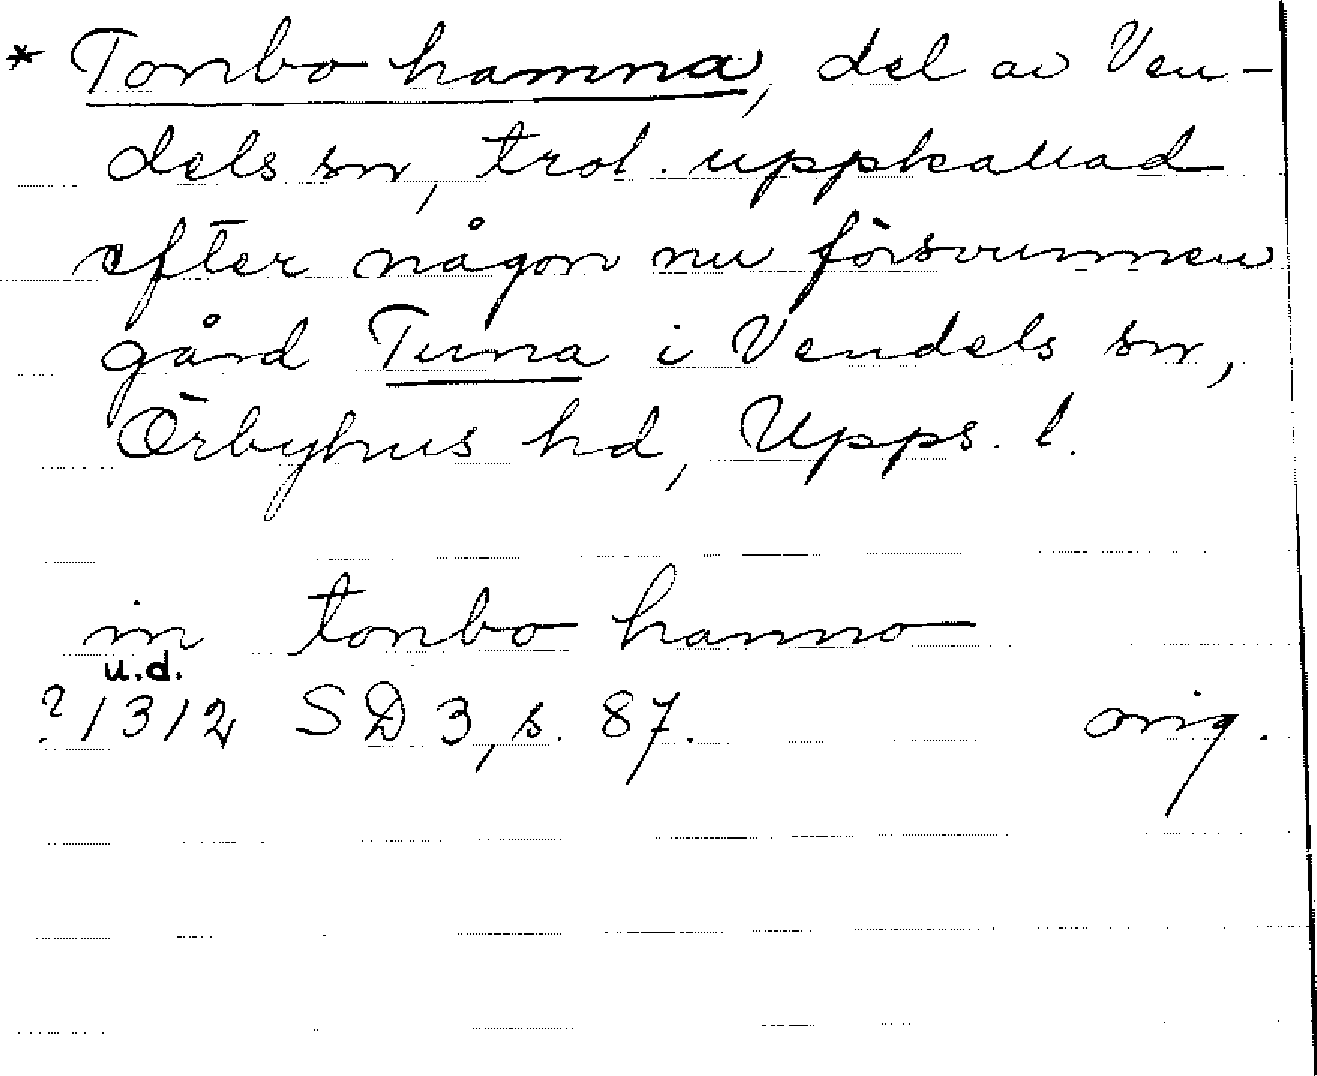 * Tonbo hamna, del av Ven-
dels sn, trol. uppkallad
efter någon nu försvunnen
gård Tuna i Vendels sn,
Örbyhus hd, Upps. l.
in tonbo hanno
u.d.
? 1312 SD 3, s. 87. orig.